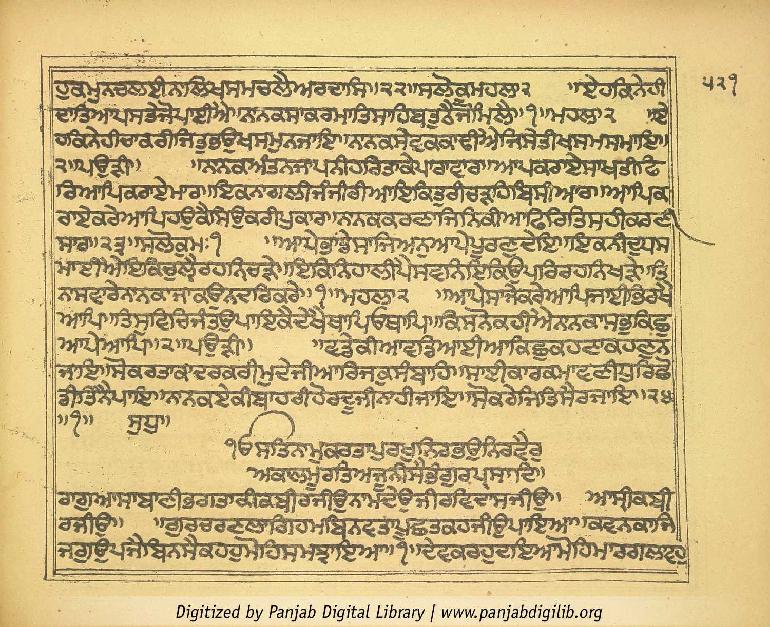 ਹੁਕਮੁਨਚਲਈਨਾਲਿਖਸਮਚਲੈਅਰਦਾਸਿ॥੨੨॥ਸਲੋਕੁਮਹਲਾ੨ ॥ਏਹਕਿਨੇਹੀ ੫੨੧
ਦਾਤਿਆਪਸਤੇਜੋਪਾਈਐ॥ਨਾਨਕਸਾਕਰਮਾਤਿਸਾਹਿਬਤੁਠੈਜੋਮਿਲੈ॥੧॥ਮਹਲਾ੨ ॥ਏ
ਹਕਿਨੇਹੀਚਾਕਰੀਜਿਤੁਭਉਖਸਮਨਜਾਇ॥ਨਾਨਕਸੇਵਕੁਕਾਢੀਐਜਿਸੇਤੀਖਸਮਸਮਾਇ॥
੨॥ਪਉੜੀ॥ ॥ਨਾਨਕਅੰਤਨਜਾਪਨੀਹਰਿਤਾਕੇਪਾਰਾਵਾਰ॥ਆਪਿਕਰਾਏਸਾਖਤੀਫਿ
ਰਿਆਪਿਕਰਾਏਮਾਰ॥ਇਕਨਾਗਲੀਜੰਜੀਰੀਆਇਕਿਤੁਰੀਚੜਹਿਬਿਸੀਆਰ॥ਆਪਿਕ
ਰਾਏਕਰੇਆਪਿਹਉਕੈਸਿਉਕਰੀਪੁਕਾਰ॥ਨਾਨਕਕਰਣਾਜਿਨਿਕੀਆਫਿਰਿਤਿਸਹੀਕਰਣੀ
ਸਾਰ॥੨੩॥ਸਲੋਕੁਮਃ੧ ॥ਆਪੇਭਾਂਡੇਸਾਜਿਅਨੁਆਪੇਪੂਰਣੁਦੇਇ॥ਇਕਨੀਦੁਧੁਸ
ਮਾਈਐਇਕਿਚੁਲੈਰਹਨਿਚੜੇ॥ਇਕਿਨਿਹਾਲੀਪੈਸਵਨਿਇਕਿਉਪਰਿਰਹਨਿਖੜੇ॥ਤਿ
ਨਾਸਵਾਰੇਨਾਨਕਾਜਾਕਉਨਦਰਿਕਰੇ॥੧॥ਮਹਲਾ੨ ॥ਆਪੇਸਾਜੇਕਰੇਆਪਿਜਾਈਭਿਰਖੈ
ਆਪਿ॥ਤਿਸੁਵਿਚਿਜੰਤਉਪਾਇਕੈਦੇਖੈਥਾਪਿਉਥਾਪਿ॥ਕਿਸਨੋਕਹੀਐਨਾਨਕਾਸਭੁਕਿਛੁ
ਆਪੇਆਪਿ॥੨॥ਪਉੜੀ॥ ॥ਵਡੇਕੀਆਵਡਿਆਈਆਕਿਛੁਕਹਣਾਕਹਣੁਨ
ਜਾਇ॥ਸੋਕਰਤਾਕਾਦਰਕਰੀਮੁਦੇਜੀਆਰਿਜਕੁਸੰਬਾਹਿ॥ਸਾਈਕਾਰਕਮਾਵਣੀਧੁਰਿਛੋ
ਡੀਤਿੰਨੈਪਾਇ॥ਨਾਨਕਏਕੀਬਾਹਰੀਹੋਰਦੂਜੀਨਾਹੀਜਾਇ॥ਸੋਕਰੇਜਿਤਿਸੈਰਜਾਇ॥੨੪
॥੧॥ ਸੁਧੁ॥
ੴਸਤਿਨਾਮੁਕਰਤਾਪੁਰਖੁਨਿਰਭਉਨਿਰਵੈਰੁ
ਅਕਾਲਮੂਰਤਿਅਜੂਨੀਸੈਭੰਗੁਰਪ੍ਰਸਾਦਿ॥
ਰਾਗੁਆਸਾਬਾਣੀਭਗਤਾਕੀਕਬੀਰਜੀਉਨਾਮਦੇਉਜੀਰਵਿਦਾਸਜੀਉ॥ ਆਸਾਸ੍ਰੀਕਬੀ
ਰਜੀਉ॥ ॥ਗੁਰਚਰਣਲਾਗਿਹਮਬਿਨਵਤਾਪੂਛਤਕਹਜੀਉਪਾਇਆ॥ਕਵਨਕਾਜਿ
ਜਗੁਉਪਜੈਬਿਨਸੈਕਹਹੁਮੋਹਿਸਮਝਾਇਆ॥੧॥ਦੇਵਕਰਹੁਦਇਆਮੋਹਿਮਾਰਗਿਲਾਵਹੁ
Digitized by Panjab Digital Library | www.panjabdigilib.org